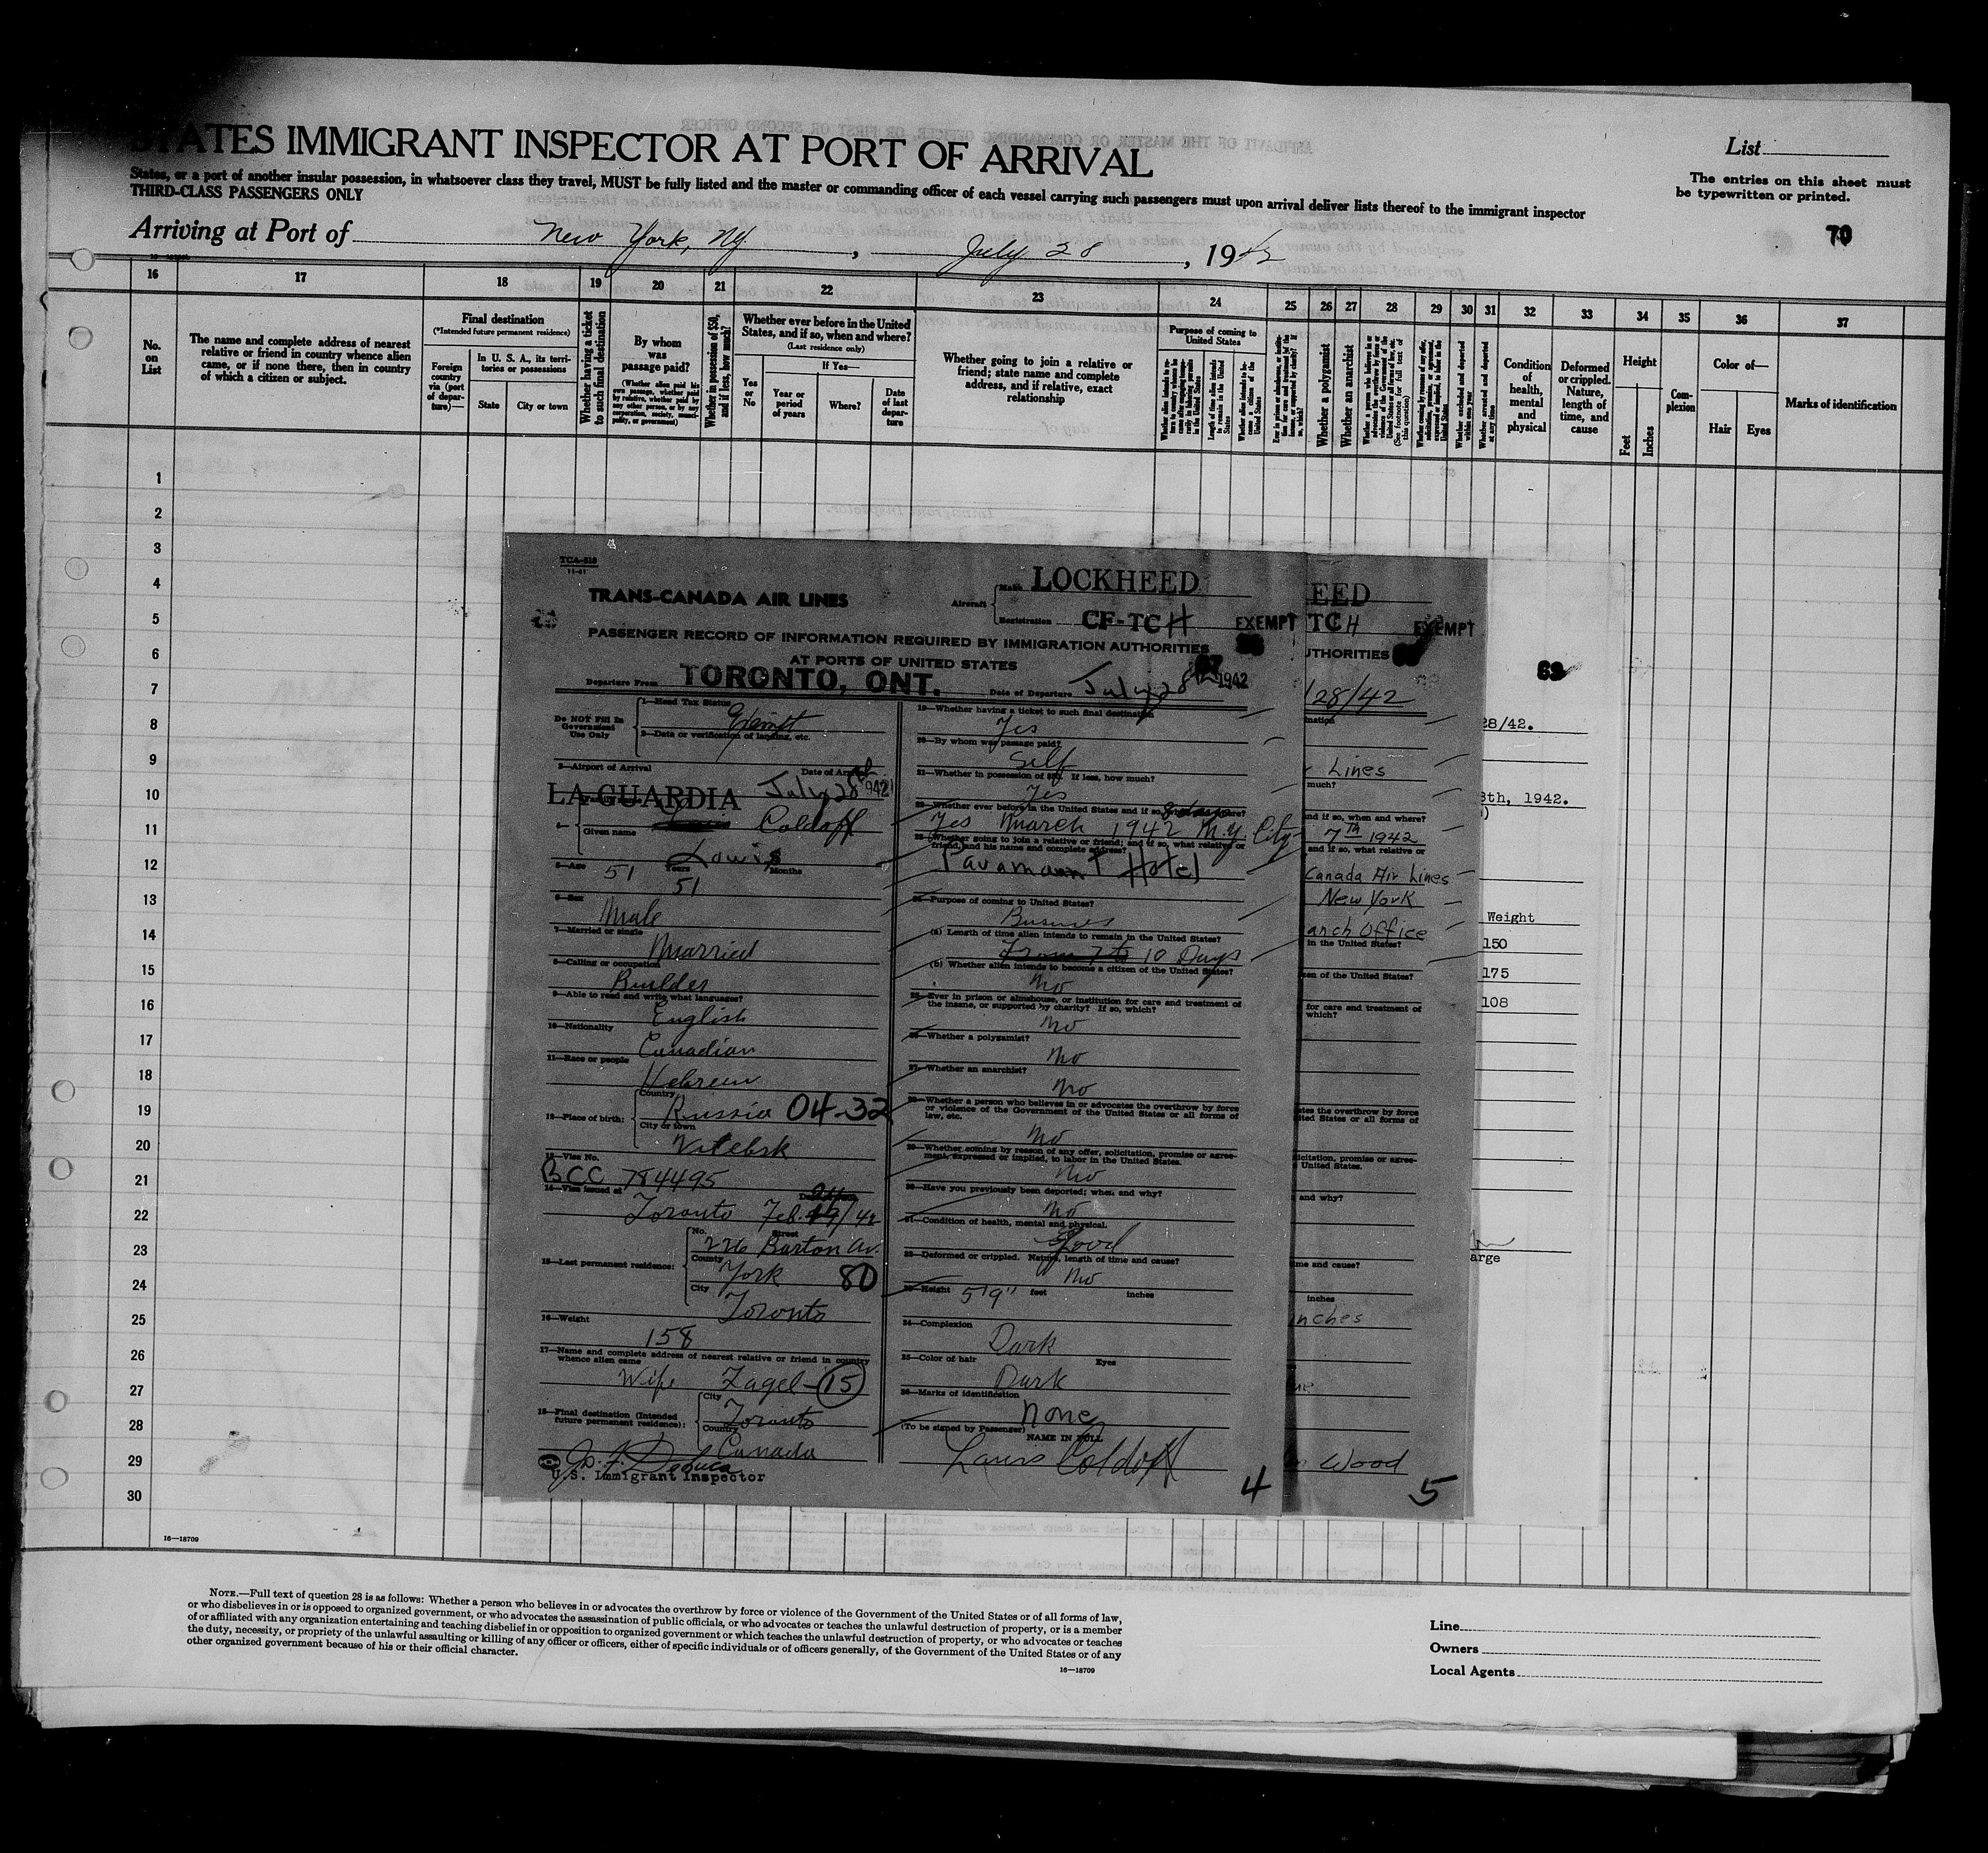 STATES IMMIGRANT INSPECTOR AT PORT OF ARRIVAL
List
States, or a port of another insular possession, in whatsoever class they travel, MUST be fully listed and the master or commanding officer of each vessel carrying such passengers must upon arrival deliver lists thereof to the immigrant inspector
THIRD-CLASS PASSENGERS ONLY
The entries on this sheet must
be typewritten or printed.
Arriving at Port of New York, NY, July 28, 1942
70
16 17 18 19 20 21 22 23 24 25 26 27 28 29 30 31 32 33 34 35 36 37
No. on List
The name and complete address of nearest relative or friend in country whence alien came, or if none there, then in country of which a citizen or subject.
Final destination
(*Intended future permanent residence)
Foreign country via (port of departure)—
In U. S. A., its territories or possessions
State
City or town
Whether having a ticket to such final destination
By whom was passage paid?
(Whether alien paid his own passage, whether paid by relative, whether paid by any other person, or by any corporation, society, municipality, or government)
Whether in possession of $50, and if less, how much?
Whether ever before in the United States, and if so, when and where?
(Last residence only)
Yes or No
If Yes—
Year or period of years
Where?
Date of last departure
Whether going to join a relative or friend; state name and complete address, and if relative, exact relationship
Purpose of coming to United States
Length of time alien intends to remain in the United States
Whether alien intends to become a citizen of the United States
Whether a polygamist
Whether an anarchist
Whether excluded and deported within one year
Whether arrested and deported at any time
Condition of health, mental and physical
Deformed or crippled. Nature, length of time, and cause
Height
Feet
Inches
Complexion
Color of—
Hair
Eyes
Marks of identification
1
2
3
4
5
6
7
8
9
10
11
12
13
14
15
16
17
18
19
20
21
22
23
24
25
26
27
28
29
30
TCA-518
11-41
TRANS-CANADA AIR LINES
Aircraft
Make LOCKHEED
Registration CF-TCH
EXEMPT
PASSENGER RECORD OF INFORMATION REQUIRED BY IMMIGRATION AUTHORITIES
AT PORTS OF UNITED STATES
Departure From TORONTO, ONT.
Date of Departure July 28 1942
Do NOT Fill In
Government
Use Only
1—Head Tax Status
Exempt
2—Data or verification of landing, etc.
3—Airport of Arrival
Date of Arrival
LA GUARDIA July 28 1942
4—
Coldoff
Given name
Louis
5—Age 51 Years Months
51
6—Sex
Male
7—Married or single
Married
8—Calling or occupation
Builder
9—Able to read and write what languages?
English
10—Nationality
Canadian
11—Race or people
Hebrew
12—Place of birth:
Country
Russia 04-32
City or town
Vitebsk
13—Visa No.
BCC 784495
14—Visa issued at
Toronto Feb. /42
15—Last permanent residence:
No. Street
226 Barton Av.
County
York 80
City
Toronto
16—Weight
158
17—Name and complete address of nearest relative or friend in country
whence alien came
Wife Zagel - 15
18—Final destination (Intended
future permanent residence):
City
Toronto
Country
Canada
U.S. Immigrant Inspector
19—Whether having a ticket to such final destination
Yes
20—By whom was passage paid?
Self
21—Whether in possession of $50. If less, how much?
Yes
22—Whether ever before in the United States and if so, when and where?
8 days
Yes March 1942 N.Y. City
23—Whether going to join a relative or friend; and if so, what relative or
friend, and his name and complete address?
Paramount Hotel
24—Purpose of coming to United States?
Business
(a) Length of time alien intends to remain in the United States?
From 7 to 10 Days
(b) Whether alien intends to become a citizen of the United States?
No
25—Ever in prison or almshouse, or institution for care and treatment of
the insane, or supported by charity? If so, which?
No
26—Whether a polygamist?
No
27—Whether an anarchist?
No
28—Whether a person who believes in or advocates the overthrow by force
or violence of the Government of the United States or all forms of
law, etc.
No
29—Whether coming by reason of any offer, solicitation, promise or agree-
ment, expressed or implied, to labor in the United States.
No
30—Have you previously been deported; when, and why?
No
31—Condition of health, mental and physical.
Good
32—Deformed or crippled. Nature, length of time and cause?
No
33—Height 5'9" feet inches
34—Complexion
Dark
35—Color of hair Eyes
Dark
36—Marks of identification
None
(To be signed by Passenger) NAME IN FULL
Louis Coldoff
4
EED
TCH
EXEMPT
UTHORITIES
/28/42
ination
r Lines
much?
nd if so, when and where?
7th 1942
and if so, what relative or
Canada Air Lines
New York
anch Office
in the United States?
en of the United States?
for care and treatment of
which?
tes the overthrow by force
ited States or all forms of
licitation, promise or agree-
United States.
and why?
me and cause?
inches
nches
Wood
5
63
28/42.
8th, 1942.
Weight
150
175
108
arge
16—18709
NOTE.—Full text of question 28 is as follows: Whether a person who believes in or advocates the overthrow by force or violence of the Government of the United States or of all forms of law,
or who disbelieves in or is opposed to organized government, or who advocates the assassination of public officials, or who advocates or teaches the unlawful destruction of property, or is a member
of or affiliated with any organization entertaining and teaching disbelief in or opposition to organized government or which teaches the unlawful destruction of property, or who advocates or teaches
the duty, necessity, or propriety of the unlawful assaulting or killing of any officer or officers, either of specific individuals or of officers generally, of the Government of the United States or of any
other organized government because of his or their official character.
16—18709
Line
Owners
Local Agents